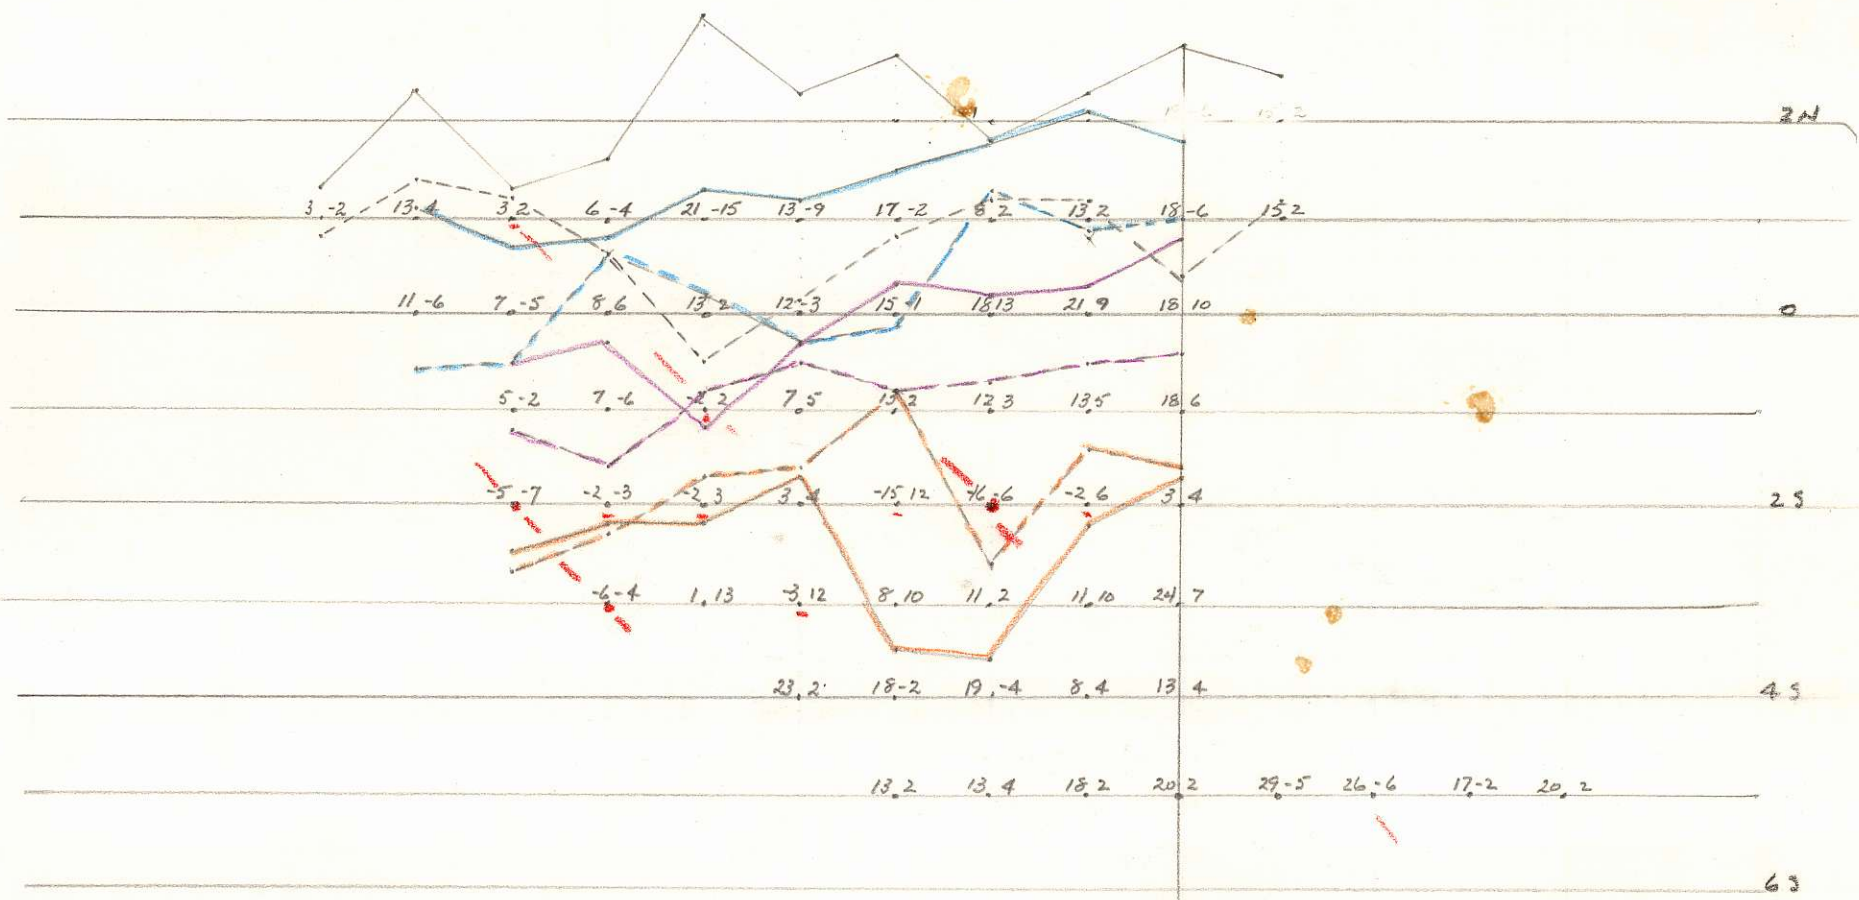 2N
3 -2 13 4 3 2 6 -4 21 -15 13 -9 17 -2 8 2 13 2 18 -6 15 2
11 -6 7 -5 8 6 13 2 12 -3 15 -1 18 13 21 9 18 10 0
5 -2 7 -6 -2 2 7 5 13 2 12 3 13 5 18 6
-5 -7 -2 -3 -2 3 3 4 -15 12 -16 -6 -2 6 3 4 2S
-6 -4 1 13 -3 12 8 10 11 2 11 10 24 7
23 2 18 -2 19 -4 8 4 13 4 4S
13 2 13 4 18 2 20 2 29 -5 26 -6 17 -2 20 2
6S